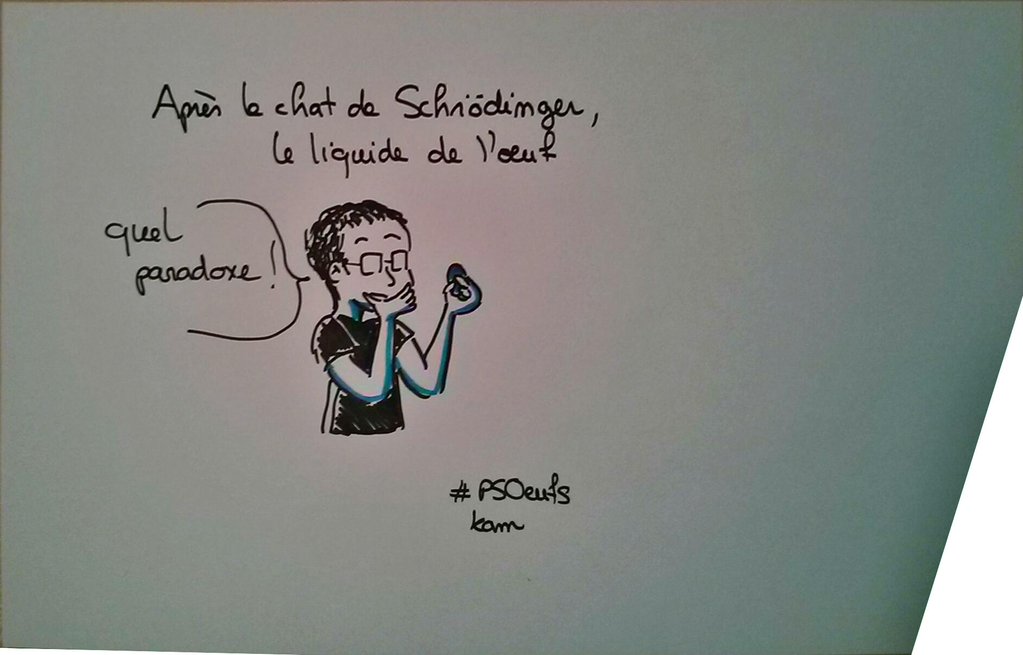 Après le chat de Schrödinger,
le liquide de l'œuf
quel
paradoxe !
#PSOeufs
kam